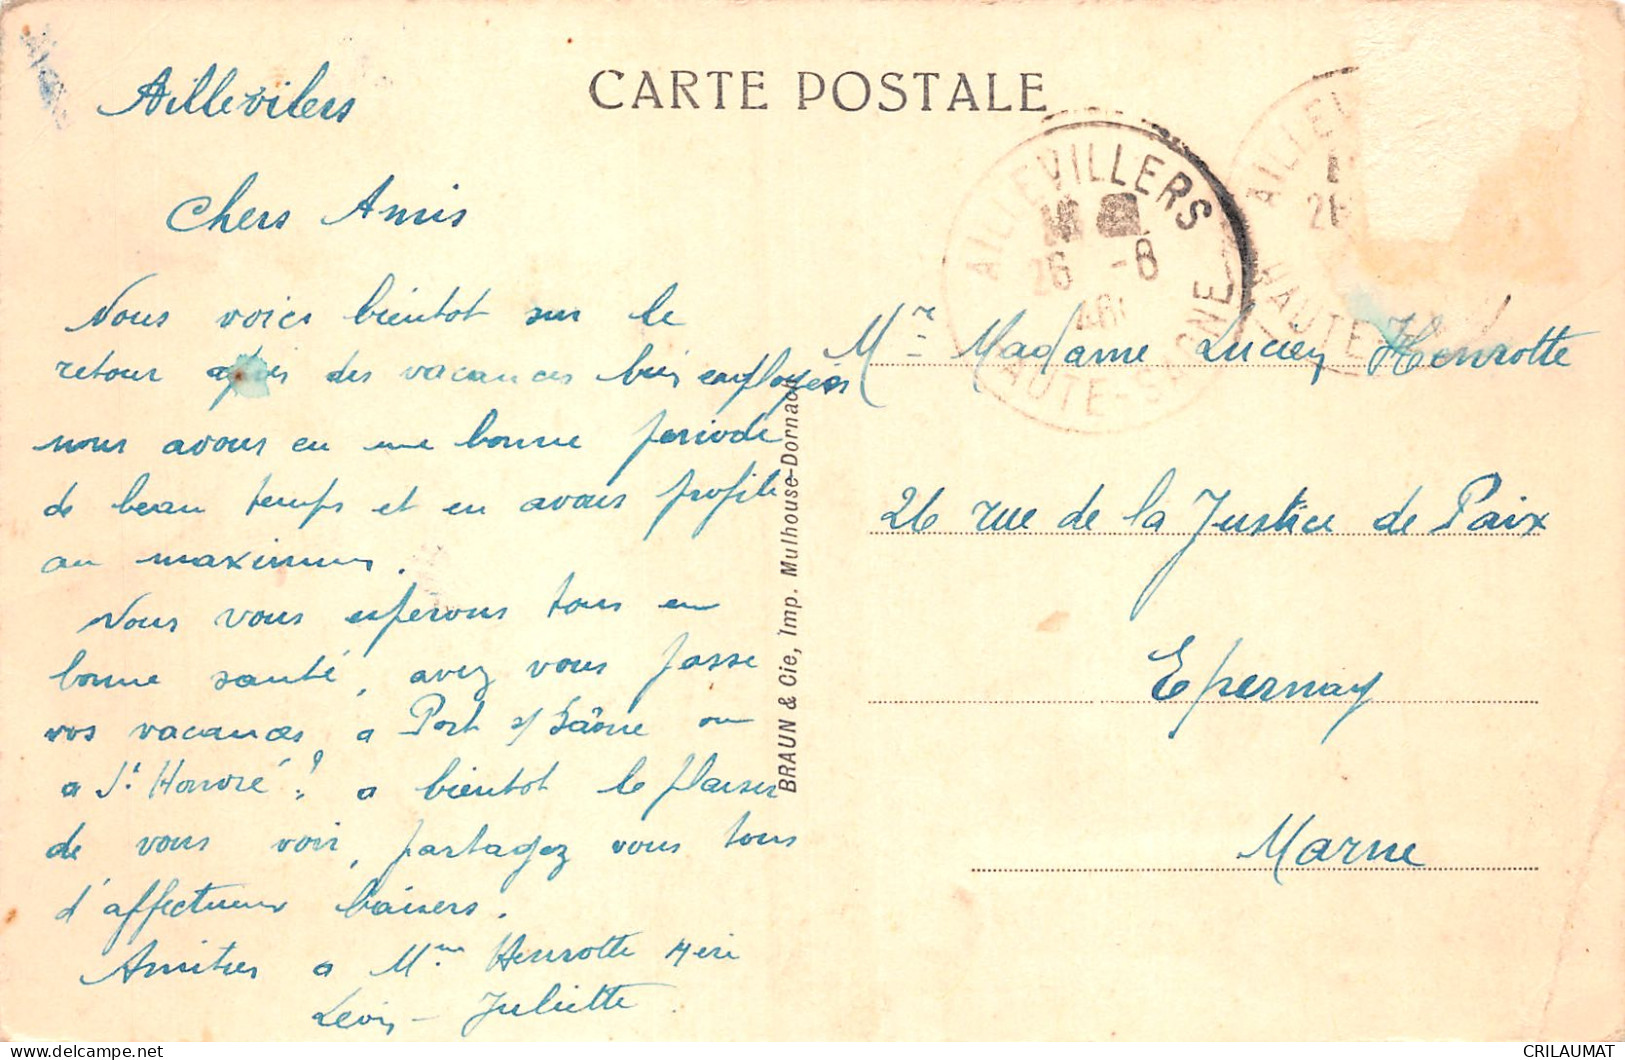 CARTE POSTALE
Aillevilers
Chers Amis
Nous voici bientot sur le
retour après des vacances bien employées
nous avons eu une bonne periode
de beau temps et en avons profité
au maximum.
Nous vous esperons tous en
bonne santé, avez vous passe
vos vacances a Port s/ Saône ou
a St Honoré ? a bientot le plaisir
de vous voir, partagez vous tous
d'affectueux baisers.
Amities a Mme Henrotte Mère
Léon - Juliette
BRAUN & Cie, Imp. Mulhouse-Dornach
AILLEVILLERS
26 -8
HAUTE-SAONE
AILLEV
26
HAUTE
Mr = Madame Lucien Henrotte
26 rue de la Justice de Paix
Epernay
Marne
CRILAUMAT